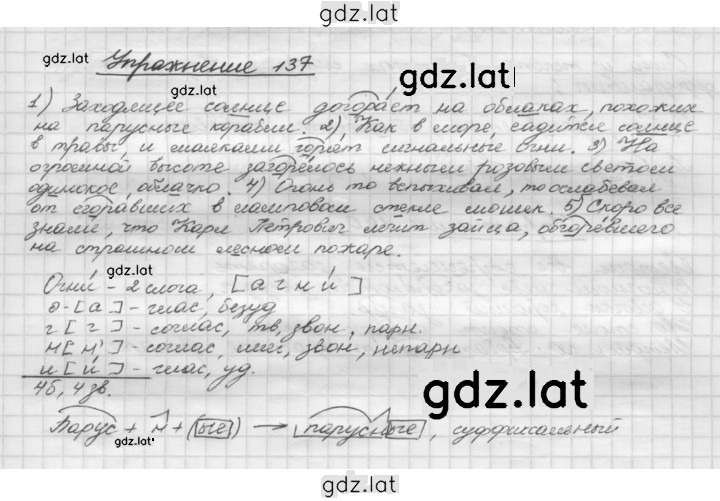 gdz.lat
gdz.lat
gdz.lat
Упражнение 137
gdz.lat
1) Заходящее солнце догорает на облаках, похожих
на парусные корабли. 2) Как в море, садится солнце
в травы, и маяками горят сигнальные огни. 3) На
огромной высоте загорелось нежным розовым светом
одинокое облачко. 4) Огонь то вспыхивал, то ослабевал
от сгоравших в ламповом стекле мошек. 5) Скоро все
знали, что Карл Петрович лечит зайца, обгоревшего
на страшном лесном пожаре.
gdz.lat
Огни́ - 2 слога, [а г н и́]
о-[а] - глас, безуд
г [г] - соглас, тв, звон, парн.
н[н'] - соглас, мяг, звон, непарн
и [и́] - глас, уд.
4б, 4 зв.
gdz.lat
Парус + н + (ые) → парусные, суффиксальный
gdz.lat
gdz.lat